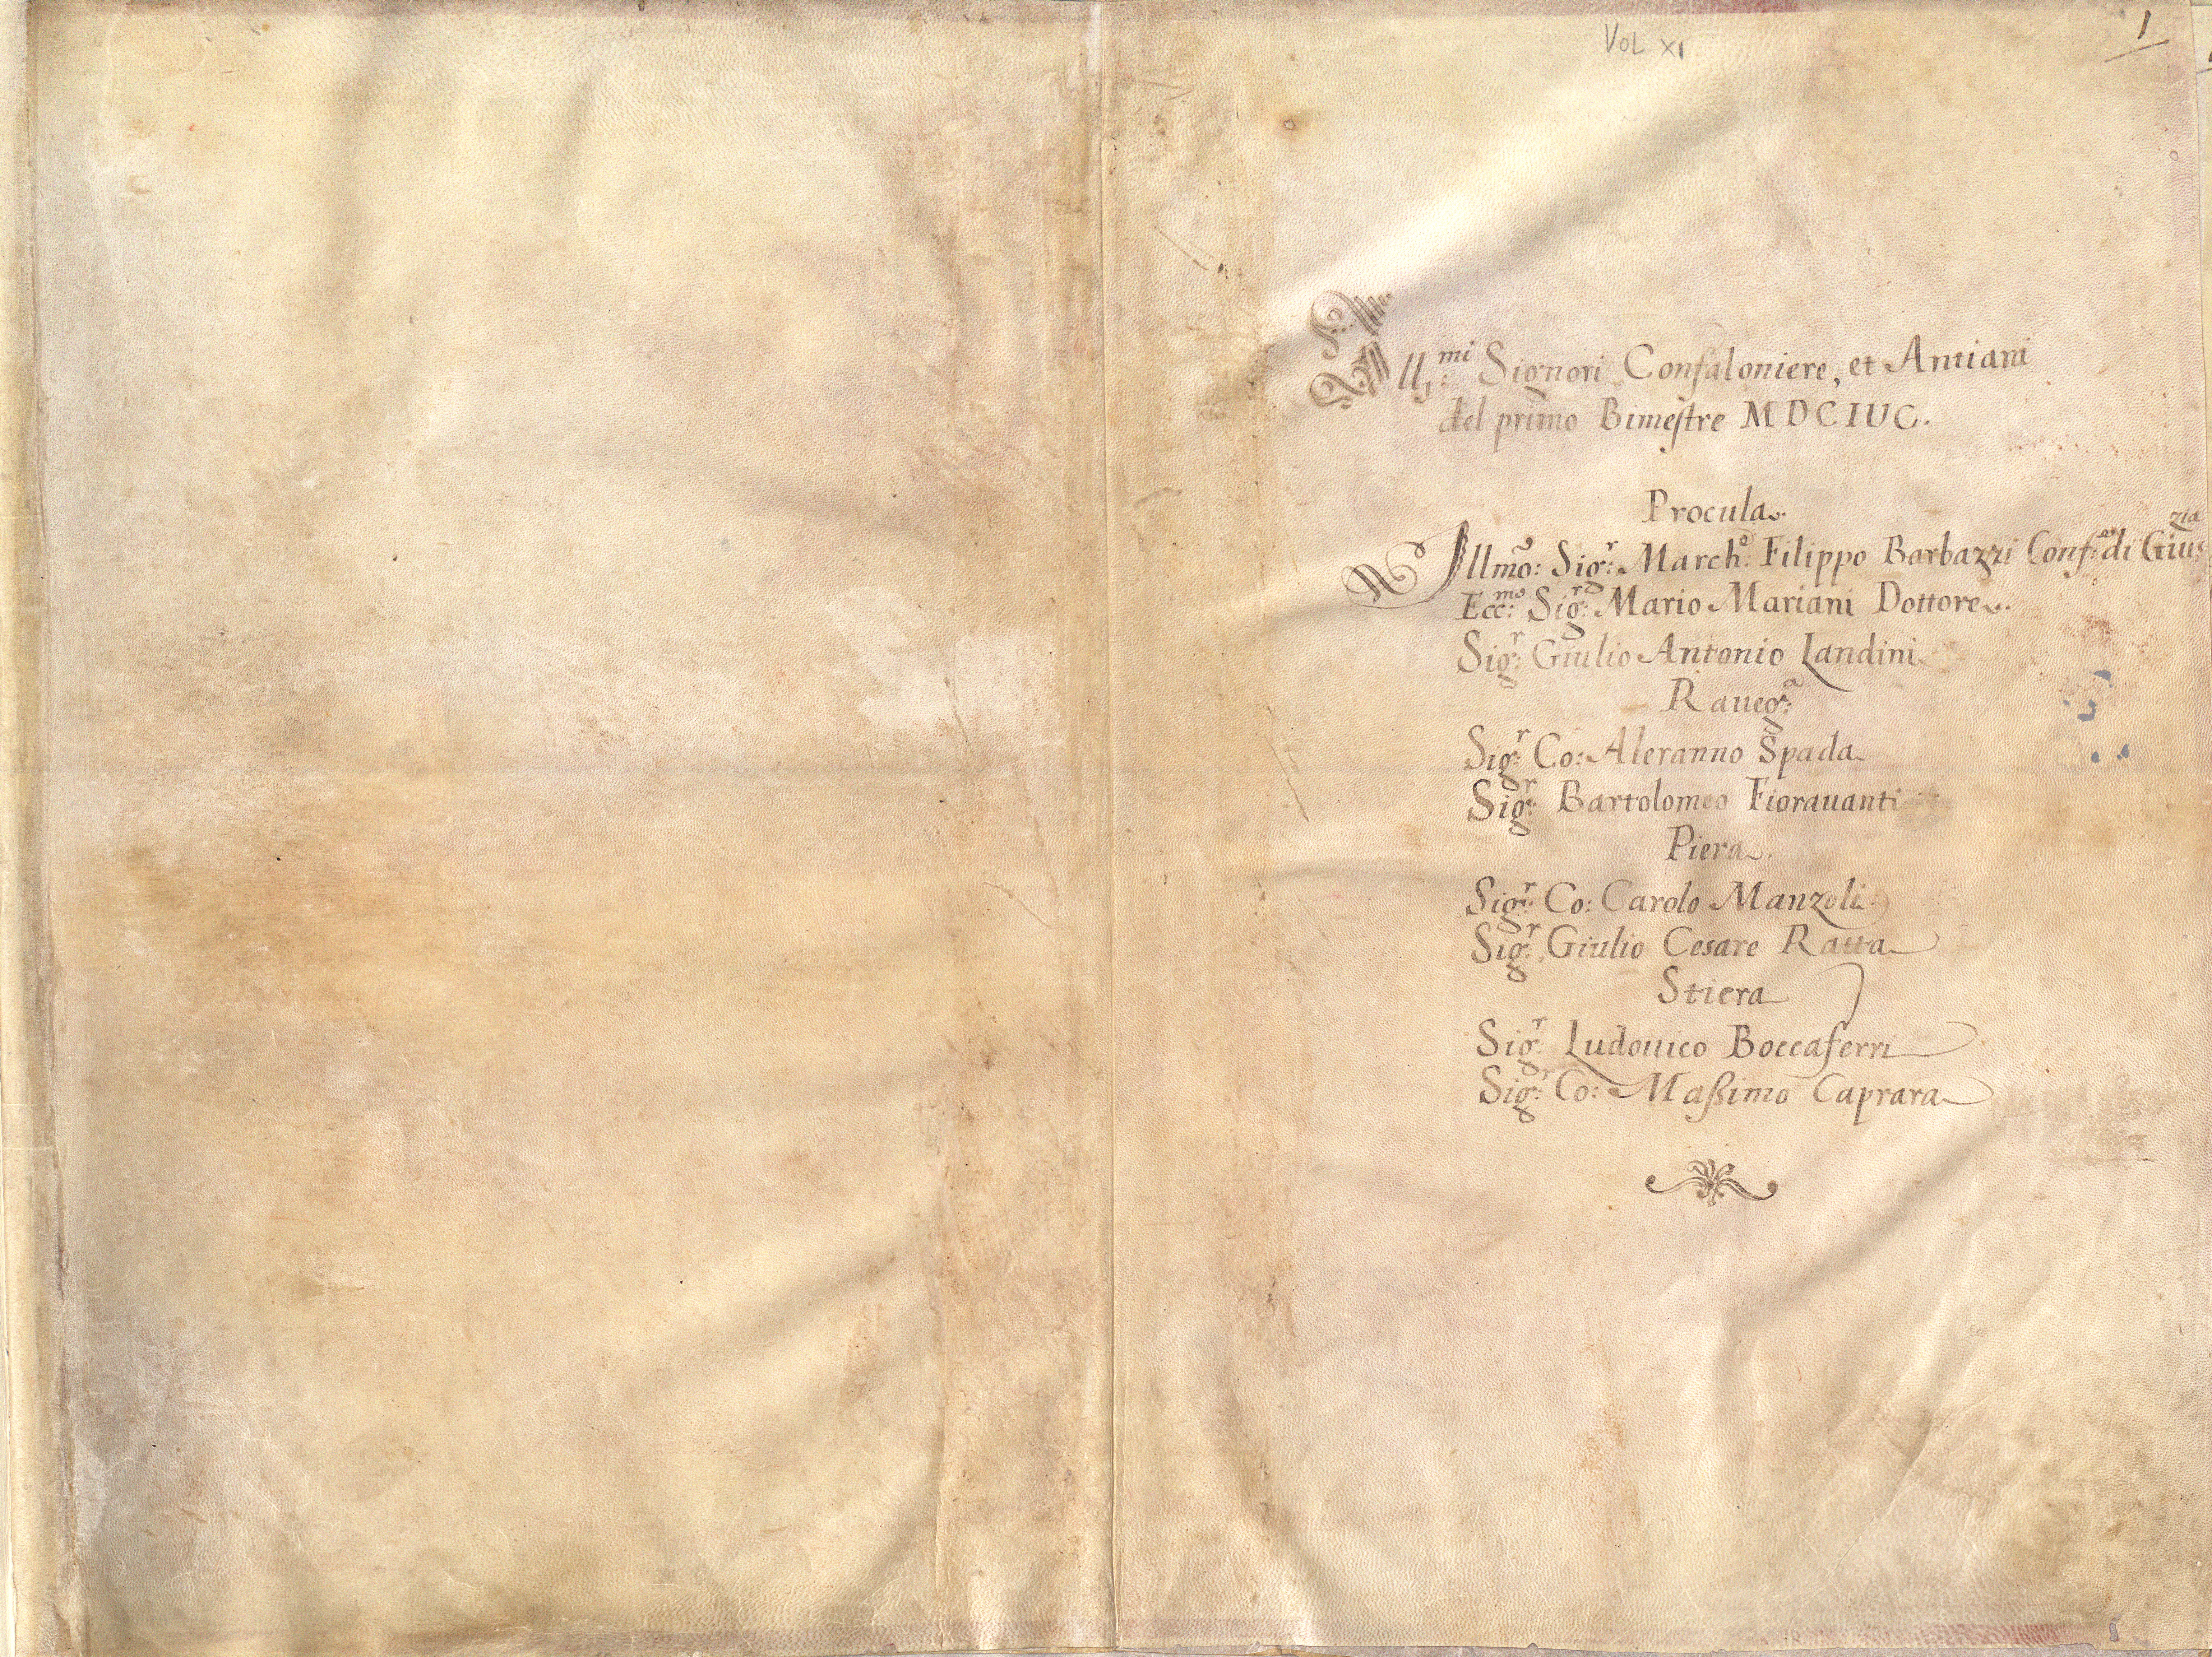 VOL XI
1
Ill:mi Signori Confaloniere, et Antiani
del primo Bimestre MDCIUC.
Procula
Illmo: Sig:r March:e Filippo Barbazzi Conf:re di Giuszia
Ecc:mo Sig:r Mario Mariani Dottore
Sig:r Giulio Antonio Landini
Raueg:a
Sig:r Co: Aleranno Spada
Sig:r Bartolomeo Fiorauanti
Piera
Sig:r Co: Carolo Manzoli
Sig:r Giulio Cesare Ratta
Stiera
Sig:r Ludouico Boccaferri
Sig:r Co: Maßimo Caprara